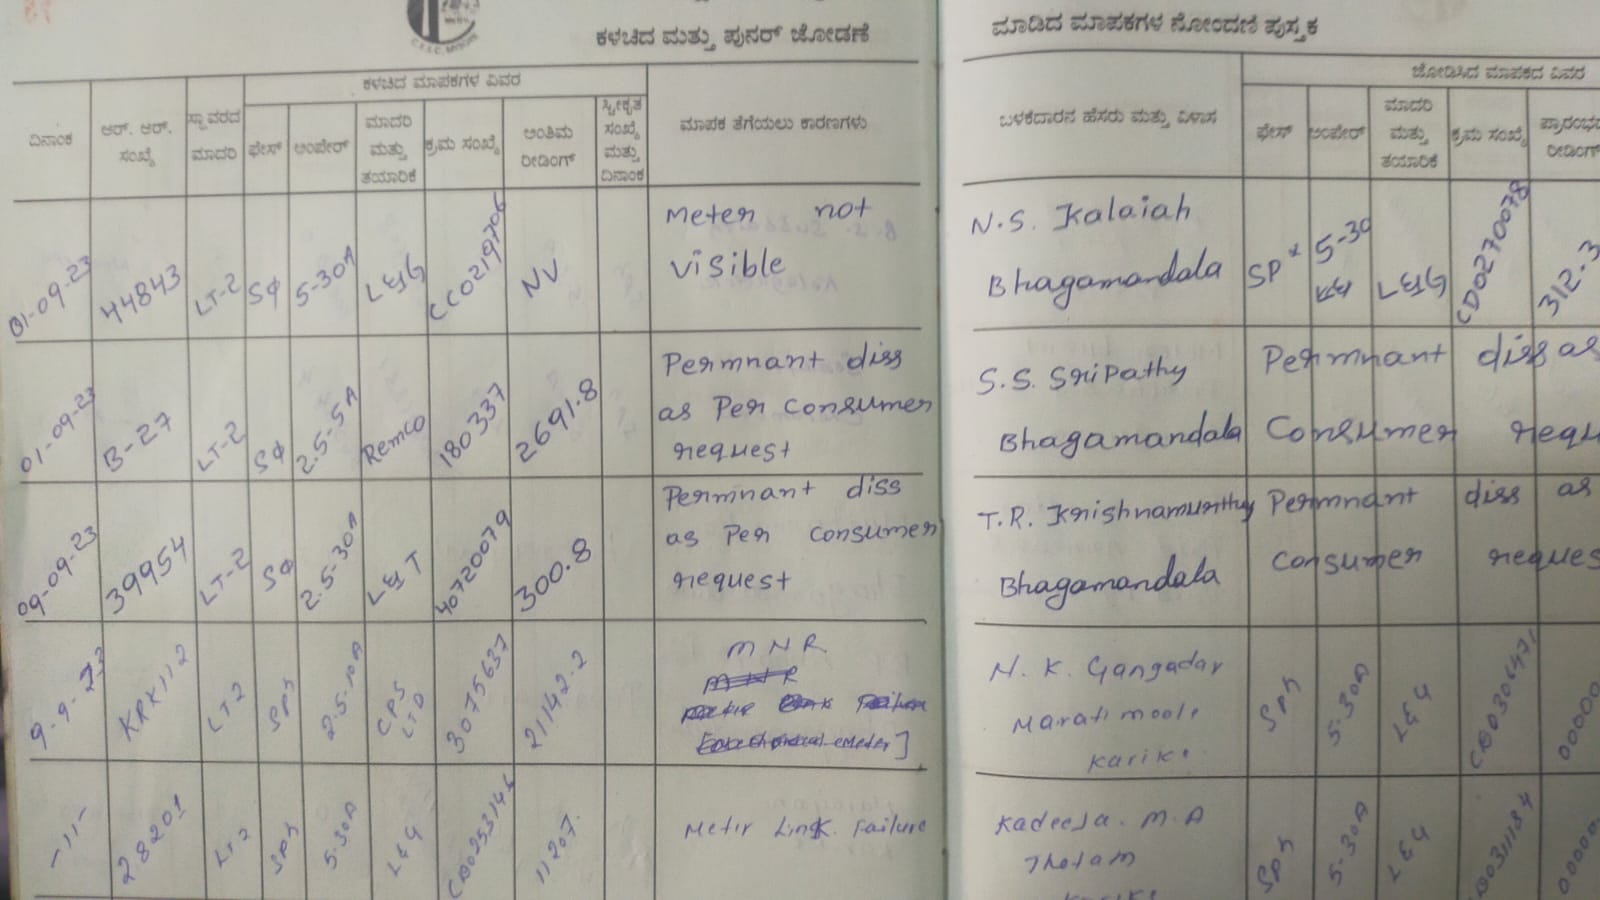 C.E.S.C. MYSORE
ಕಳಚಿದ ಮತ್ತು ಪುನರ್ ಜೋಡಣೆ ಮಾಡಿದ ಮಾಪಕಗಳ ನೋಂದಣಿ ಪುಸ್ತಕ
ದಿನಾಂಕ
ಆರ್. ಆರ್. ಸಂಖ್ಯೆ
ಸ್ಥಾವರದ ಮಾದರಿ
ಕಳಚಿದ ಮಾಪಕಗಳ ವಿವರ
ಫೇಸ್
ಅಂಪೇರ್
ಮಾದರಿ ಮತ್ತು ತಯಾರಿಕೆ
ಕ್ರಮ ಸಂಖ್ಯೆ
ಅಂತಿಮ ರೀಡಿಂಗ್
ಸ್ವೀಕೃತ ಸಂಖ್ಯೆ ಮತ್ತು ದಿನಾಂಕ
ಮಾಪಕ ತೆಗೆಯಲು ಕಾರಣಗಳು
ಬಳಕೆದಾರನ ಹೆಸರು ಮತ್ತು ವಿಳಾಸ
ಜೋಡಿಸಿದ ಮಾಪಕದ ವಿವರ
ಫೇಸ್
ಅಂಪೇರ್
ಮಾದರಿ ಮತ್ತು ತಯಾರಿಕೆ
ಕ್ರಮ ಸಂಖ್ಯೆ
ಪ್ರಾರಂಭದ ರೀಡಿಂಗ್
01-09-23 44843 LT-2 SΦ 5-30A L&G CC0219706 NV Meter not visible N.S. Kalaiah Bhagamandala SP 5-30 L&G CD0270078 312.3
01-09-23 B-27 LT-2 SΦ 2.5-5A Remco 180337 2691.8 Permnant diss as Per consumer request S.S. Sripathy Bhagamandala Permnant diss as Consumer requ
09-09-23 39954 LT-2 SΦ 2.5-30A L&T 40720079 300.8 Permnant diss as Per consumer request T.R. Krishnamurthy Bhagamandala Permnant diss as consumer reques
9.9.23 KRK112 LT2 SPH 2.5-10A CPS LTD 3075637 21142.2 MNR N.K. Gangadar Marati moole Karike SPH 5-30A L&G 00000
-11- 28201 LT2 SPH 5-30A L&G CD0253146 11207. Meter Link Failure Kadeeja. M.A Thotam Karike SPH 5-30A L&G 00000